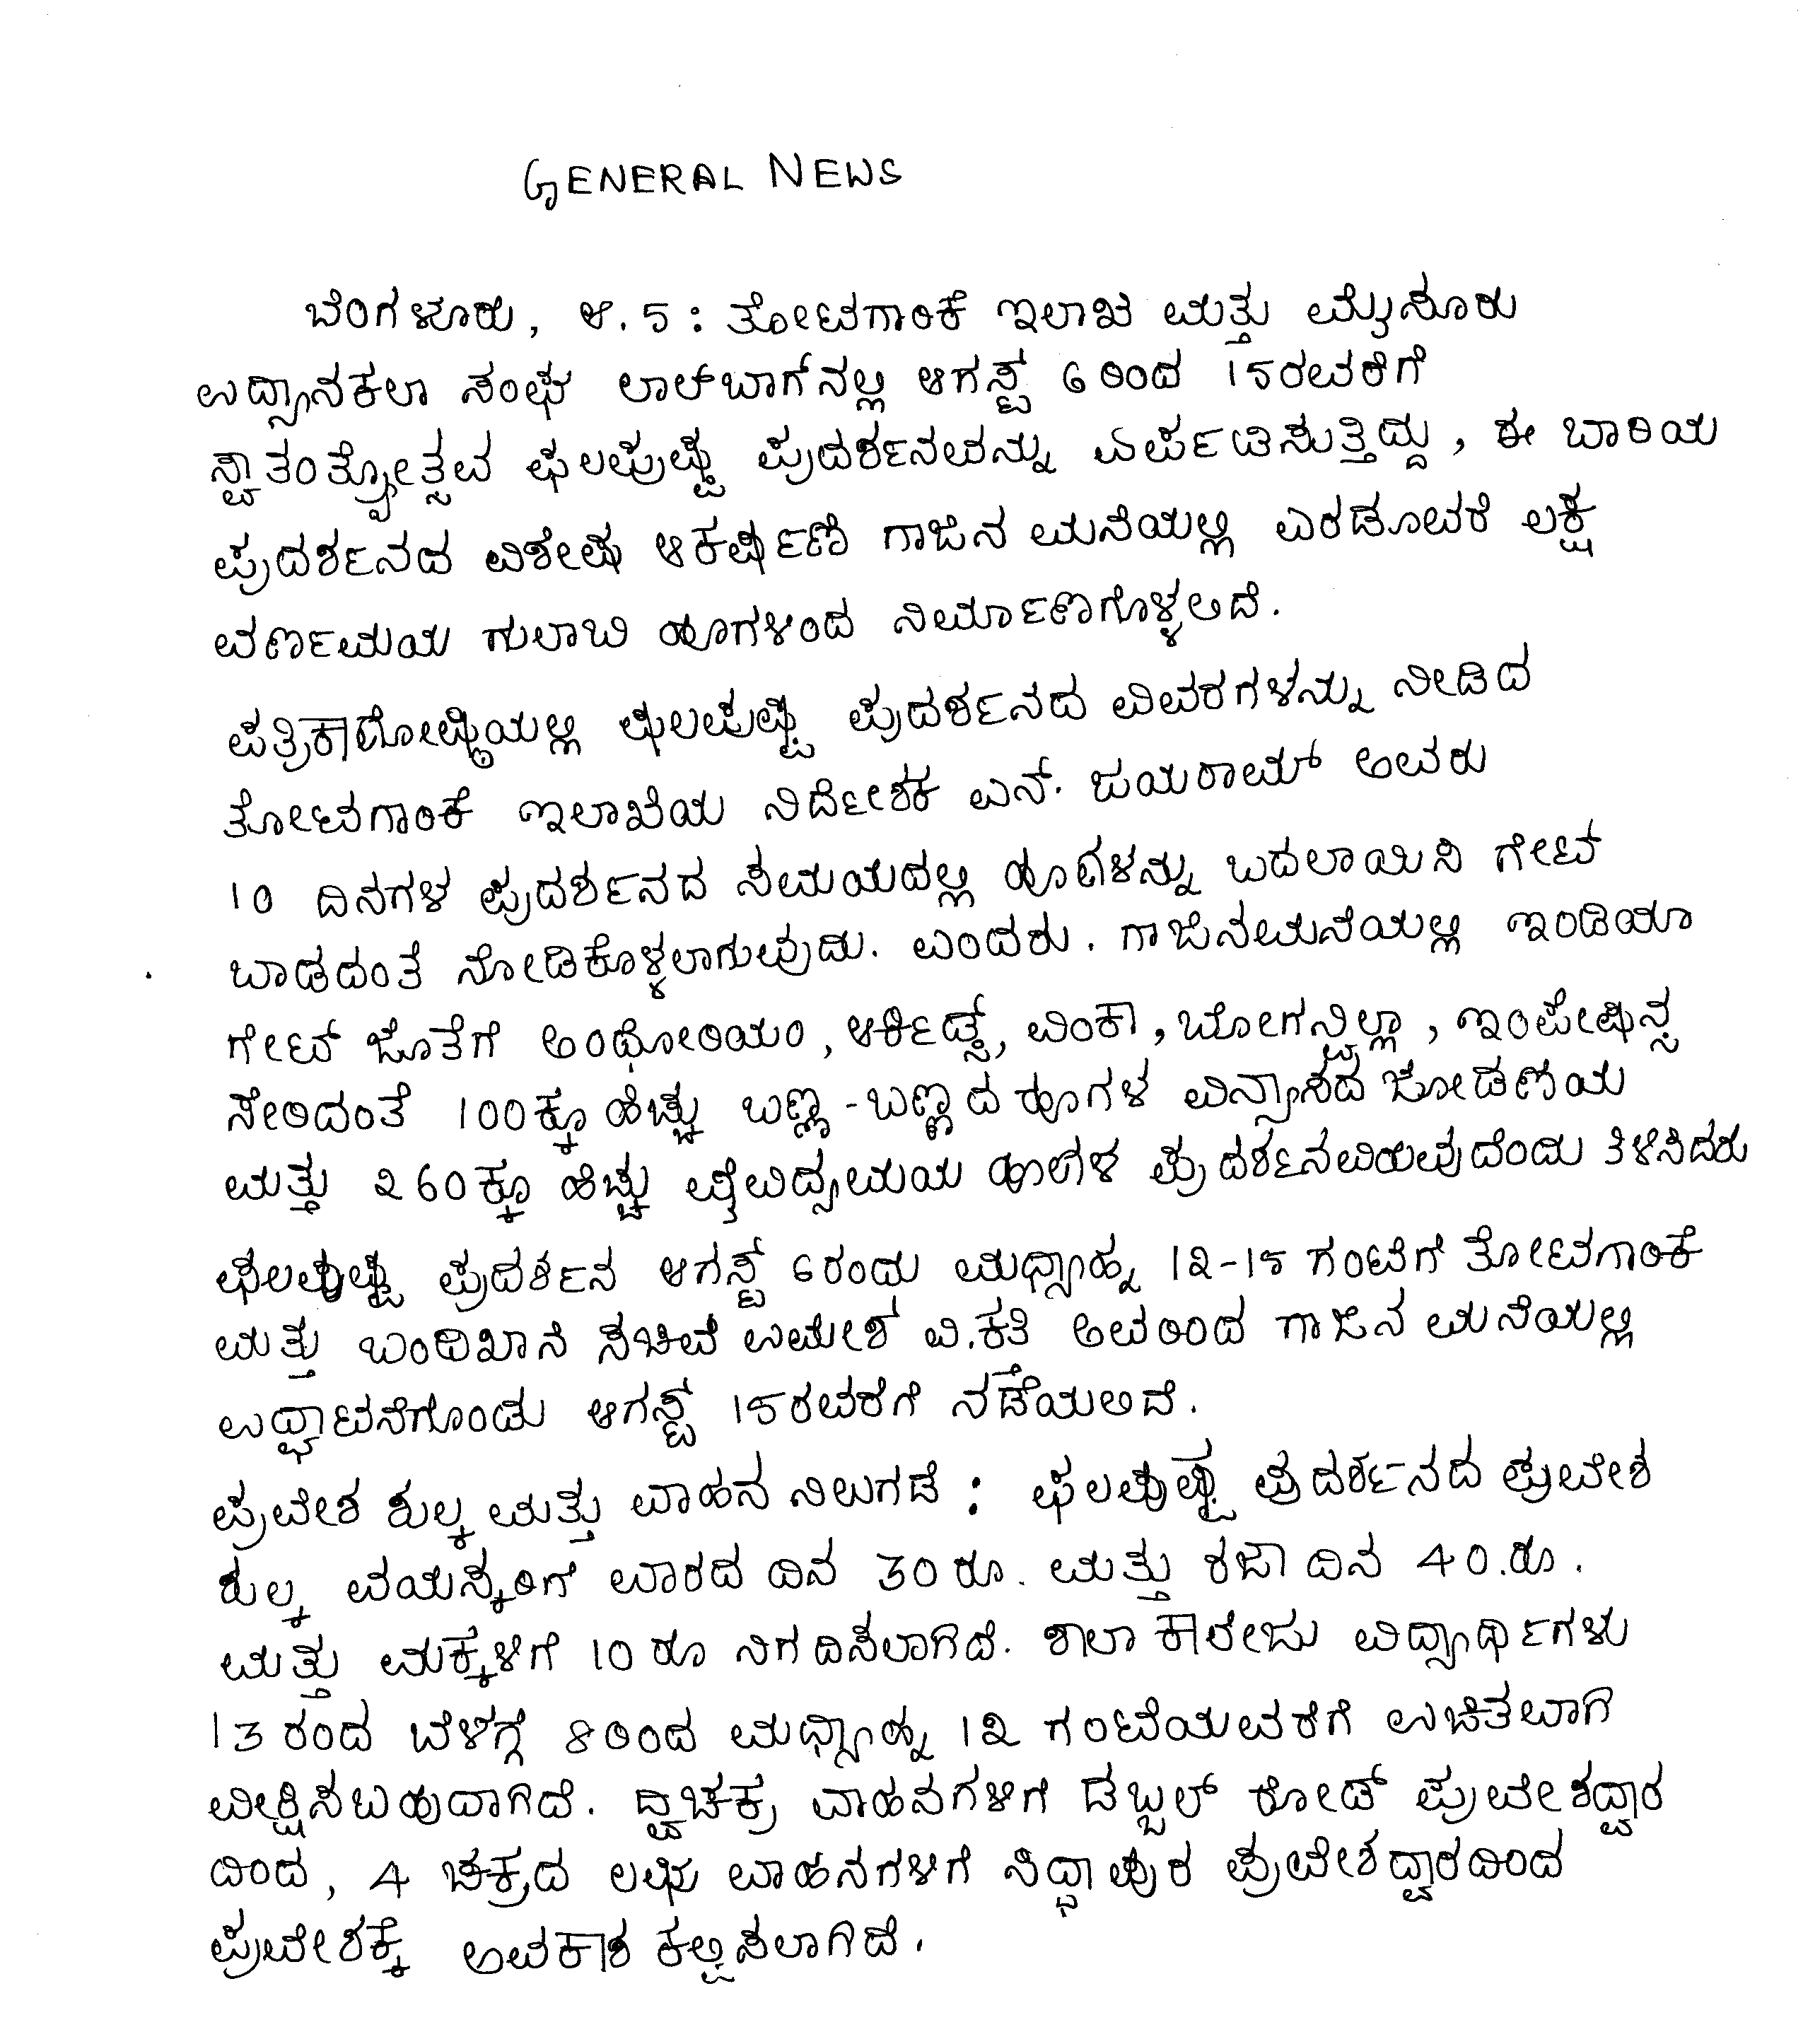 GENERAL NEWS
ಬೆಂಗಳೂರು, ಆ. 5 : ತೋಟಗಾರಿಕೆ ಇಲಾಖೆ ಮತ್ತು ಮೈಸೂರು
ಉದ್ಯಾನಕಲಾ ಸಂಘ ಲಾಲ್‌ಬಾಗ್‌ನಲ್ಲಿ ಆಗಸ್ಟ್ 6 ರಿಂದ 15ರವರೆಗೆ
ಸ್ವಾತಂತ್ರ್ಯೋತ್ಸವ ಫಲಪುಷ್ಪ ಪ್ರದರ್ಶನವನ್ನು ಏರ್ಪಡಿಸುತ್ತಿದ್ದು, ಈ ಬಾರಿಯ
ಪ್ರದರ್ಶನದ ವಿಶೇಷ ಆಕರ್ಷಣೆ ಗಾಜಿನ ಮನೆಯಲ್ಲಿ ಎರಡೂವರೆ ಲಕ್ಷ
ವರ್ಣಮಯ ಗುಲಾಬಿ ಹೂಗಳಿಂದ ನಿರ್ಮಾಣಗೊಳ್ಳಲಿದೆ.
ಪತ್ರಿಕಾಗೋಷ್ಠಿಯಲ್ಲಿ ಫಲಪುಷ್ಪ ಪ್ರದರ್ಶನದ ವಿವರಗಳನ್ನು ನೀಡಿದ
ತೋಟಗಾರಿಕೆ ಇಲಾಖೆಯ ನಿರ್ದೇಶಕ ಎನ್. ಜಯರಾಮ್ ಅವರು
10 ದಿನಗಳ ಪ್ರದರ್ಶನದ ಸಮಯದಲ್ಲಿ ಹೂಗಳನ್ನು ಬದಲಾಯಿಸಿ ಗೇಟ್
ಬಾಡದಂತೆ ನೋಡಿಕೊಳ್ಳಲಾಗುವುದು. ಎಂದರು. ಗಾಜಿನಮನೆಯಲ್ಲಿ ಇಂಡಿಯಾ
ಗೇಟ್ ಜೊತೆಗೆ ಅಂಥೋರಿಯಂ, ಆರ್ಕಿಡ್ಸ್, ವಿಂಕಾ, ಬೋಗನ್ವಿಲ್ಲಾ, ಇಂಪೇಷಿನ್ಸ್
ಸೇರಿದಂತೆ 100ಕ್ಕೂ ಹೆಚ್ಚು ಬಣ್ಣ-ಬಣ್ಣದ ಹೂಗಳ ವಿನ್ಯಾಸದ ಜೋಡಣೆಯ
ಮತ್ತು 260ಕ್ಕೂ ಹೆಚ್ಚು ವೈವಿಧ್ಯಮಯ ಹೂಗಳ ಪ್ರದರ್ಶನವಿರುವುದೆಂದು ತಿಳಿಸಿದರು
ಫಲಪುಷ್ಪ ಪ್ರದರ್ಶನ ಆಗಸ್ಟ್ 6ರಂದು ಮಧ್ಯಾಹ್ನ 12-15 ಗಂಟೆಗೆ ತೋಟಗಾರಿಕೆ
ಮತ್ತು ಬಂಧಿಖಾನೆ ಸಚಿವ ಉಮೇಶ ವಿ.ಕತ್ತಿ ಅವರಿಂದ ಗಾಜಿನ ಮನೆಯಲ್ಲಿ
ಉದ್ಘಾಟನೆಗೊಂಡು ಆಗಸ್ಟ್ 15ರವರೆಗೆ ನಡೆಯಲಿದೆ.
ಪ್ರವೇಶ ಶುಲ್ಕ ಮತ್ತು ವಾಹನ ನಿಲುಗಡೆ : ಫಲಪುಷ್ಪ ಪ್ರದರ್ಶನದ ಪ್ರವೇಶ
ಶುಲ್ಕ ವಯಸ್ಕರಿಗೆ ವಾರದ ದಿನ 30 ರೂ. ಮತ್ತು ರಜಾ ದಿನ 40.ರೂ.
ಮತ್ತು ಮಕ್ಕಳಿಗೆ 10 ರೂ ನಿಗದಿಸಲಾಗಿದೆ. ಶಾಲಾ ಕಾಲೇಜು ವಿದ್ಯಾರ್ಥಿಗಳು
13 ರಂದ ಬೆಳಿಗ್ಗೆ 8ರಿಂದ ಮಧ್ಯಾಹ್ನ 12 ಗಂಟೆಯವರೆಗೆ ಉಚಿತವಾಗಿ
ವೀಕ್ಷಿಸಬಹುದಾಗಿದೆ. ದ್ವಿಚಕ್ರ ವಾಹನಗಳಿಗೆ ಡಬ್ಬಲ್ ರೋಡ್ ಪ್ರವೇಶದ್ವಾರ
ದಿಂದ, 4 ಚಕ್ರದ ಲಘು ವಾಹನಗಳಿಗೆ ಸಿದ್ಧಾಪುರ ಪ್ರವೇಶದ್ವಾರದಿಂದ
ಪ್ರವೇಶಕ್ಕೆ ಅವಕಾಶ ಕಲ್ಪಿಸಲಾಗಿದೆ.